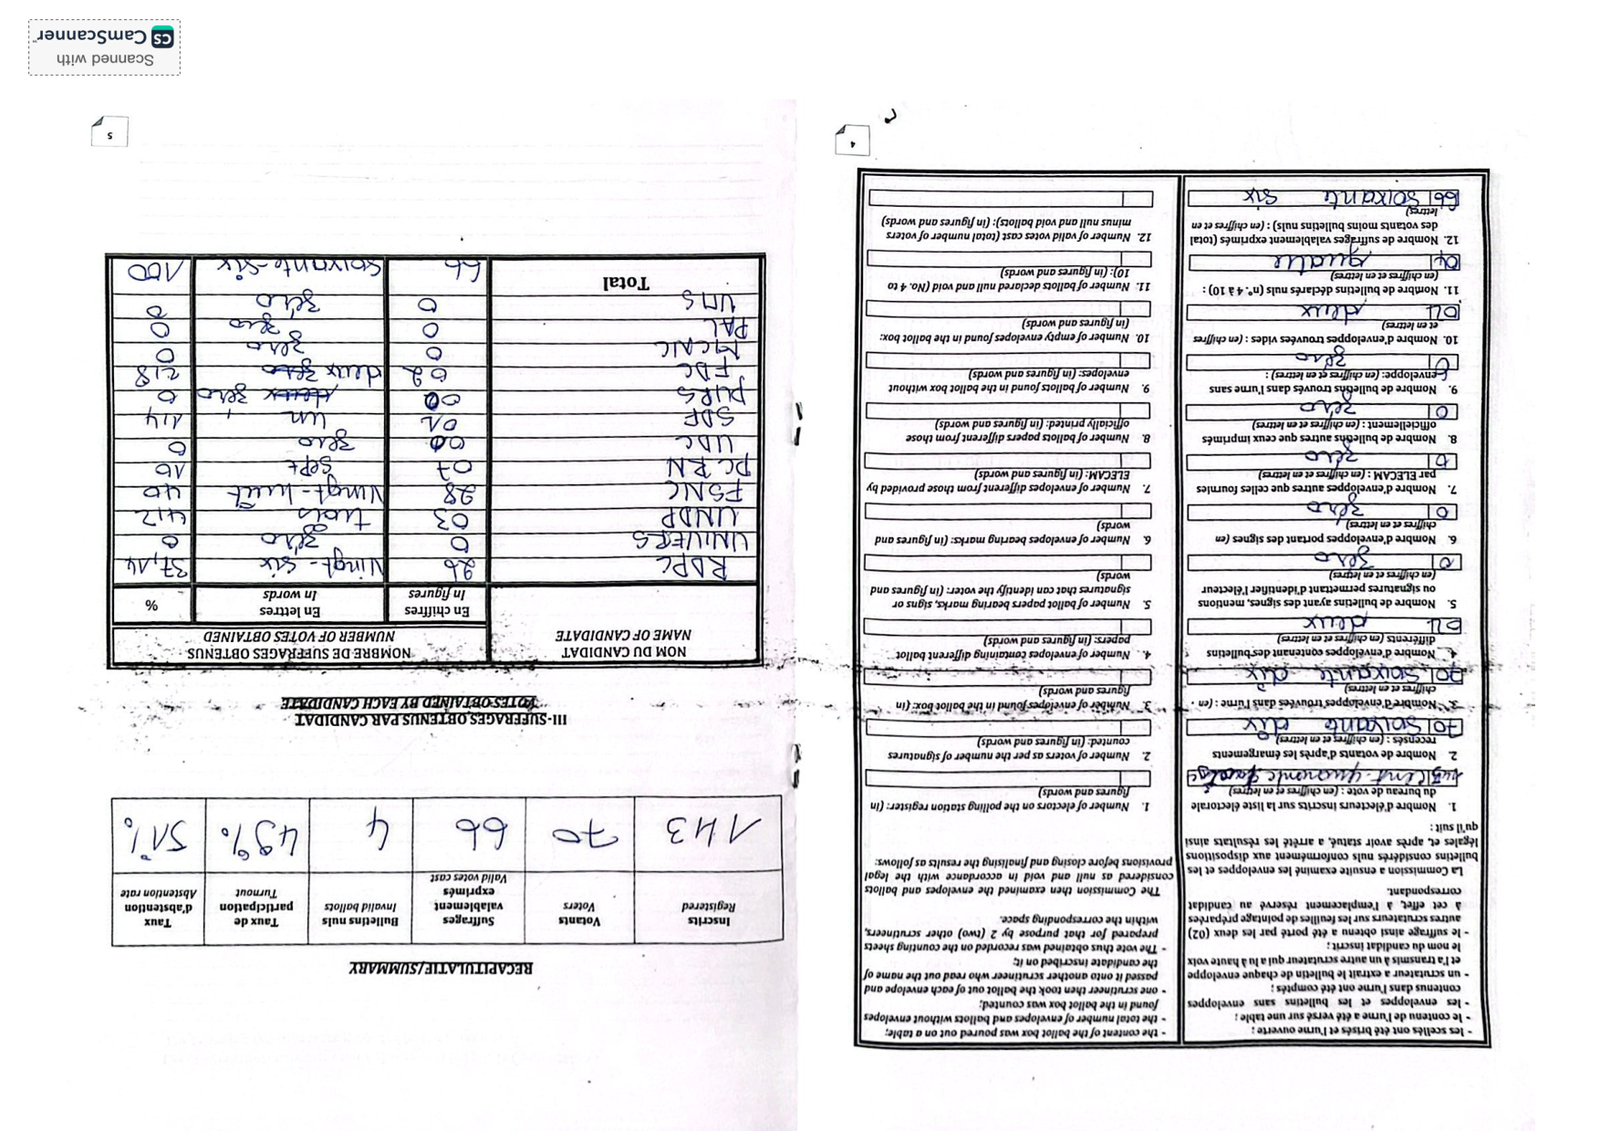 - les scellés ont été brisés et l'urne ouverte ;
- le contenu de l'urne a été versé sur une table ;
- les enveloppes et les bulletins sans enveloppes
contenus dans l'urne ont été comptés ;
- un scrutateur a extrait le bulletin de chaque enveloppe
et l'a transmis à un autre scrutateur qui a lu à haute voix
le nom du candidat inscrit ;
- le suffrage ainsi obtenu a été porté par les deux (02)
autres scrutateurs sur les feuilles de pointage préparées
à cet effet, à l'emplacement réservé au candidat
correspondant.
La Commission a ensuite examiné les enveloppes et les
bulletins considérés nuls conformément aux dispositions
légales et, après avoir statué, a arrêté les résultats ainsi
qu'il suit :
1. Nombre d'électeurs inscrits sur la liste électorale
du bureau de vote : (en chiffres et en lettres)
2. Nombre de votants d'après les émargements
recensés : (en chiffres et en lettres)
70 Soixante dix
3. Nombre d'enveloppes trouvées dans l'urne : (en
chiffres et en lettres)
70 Soixante dix
4. Nombre d'enveloppes contenant des bulletins
différents (en chiffres et en lettres)
02 deux
5. Nombre de bulletins ayant des signes, mentions
ou signatures permettant d'identifier l'électeur
(en chiffres et en lettres)
0 zéro
6. Nombre d'enveloppes portant des signes (en
chiffres et en lettres)
0 zéro
7. Nombre d'enveloppes autres que celles fournies
par ELECAM : (en chiffres et en lettres)
0 zéro
8. Nombre de bulletins autres que ceux imprimés
officiellement : (en chiffres et en lettres)
0 zéro
9. Nombre de bulletins trouvés dans l'urne sans
enveloppe: (en chiffres et en lettres) :
0 zéro
10. Nombre d'enveloppes trouvées vides : (en chiffres
et en lettres)
02 deux
11. Nombre de bulletins déclarés nuls (n°. 4 à 10) :
(en chiffres et en lettres)
04 quatre
12. Nombre de suffrages valablement exprimés (total
des votants moins bulletins nuls) : (en chiffres et en
lettres)
66 soixante six
- the content of the ballot box was poured out on a table;
- the total number of envelopes and ballots without envelopes
found in the ballot box was counted;
- one scrutineer then took the ballot out of each envelope and
passed it onto another scrutineer who read out the name of
the candidate inscribed on it;
- The vote thus obtained was recorded on the counting sheets
prepared for that purpose by 2 (two) other scrutineers,
within the corresponding space.
The Commission then examined the envelopes and ballots
considered as null and void in accordance with the legal
provisions before closing and finalising the results as follows:
1. Number of electors on the polling station register: (in
figures and words)
2. Number of voters as per the number of signatures
counted: (in figures and words)
3. Number of envelopes found in the ballot box: (in
figures and words)
4. Number of envelopes containing different ballot
papers: (in figures and words)
5. Number of ballot papers bearing marks, signs or
signatures that can identify the voter: (in figures and
words)
6. Number of envelopes bearing marks: (in figures and
words)
7. Number of envelopes different from those provided by
ELECAM: (in figures and words)
8. Number of ballots papers different from those
officially printed: (in figures and words)
9. Number of ballots found in the ballot box without
envelopes: (in figures and words)
10. Number of empty envelopes found in the ballot box:
(in figures and words)
11. Number of ballots declared null and void (No. 4 to
10): (in figures and words)
12. Number of valid votes cast (total number of voters
minus null and void ballots): (in figures and words)
4
RECAPITULATIF/SUMMARY
Inscrits Registered | Votants Voters | Suffrages valablement exprimés Valid votes cast | Bulletins nuls Invalid ballots | Taux de participation Turnout | Taux d'abstention Abstention rate
143 | 70 | 66 | 4 | 49% | 51%
III- SUFFRAGES OBTENUS PAR CANDIDAT
VOTES OBTAINED BY EACH CANDIDATE
NOM DU CANDIDAT NAME OF CANDIDATE | NOMBRE DE SUFFRAGES OBTENUS NUMBER OF VOTES OBTAINED
En chiffres In figures | En lettres In words | %
RDPC 26 Vingt-six 37,14
UNIVERS 0 zéro 0
UNDP 03 trois 4,2
FSNC 28 Vingt-huit 40
PCRN 07 Sept 10
UDC 00 zéro 0
SDF 01 un 1,4
PURS 00 deux zéro 0
FDC 02 deux zéro 2,8
MCNC 0 zéro 0
PAL 0 zéro 0
UMS 0 zéro 0
Total 66 Soixante-six 100
5
Scanned with
CS CamScanner